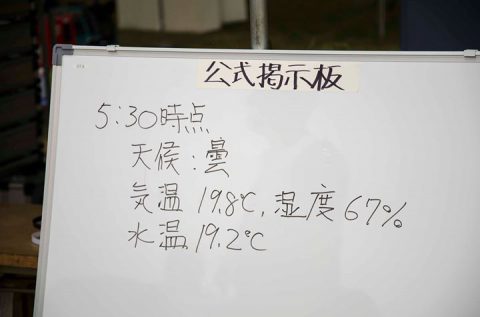 公式掲示板
5:30時点
天候:曇
気温 19.8℃, 湿度 67%
水温 19.2℃